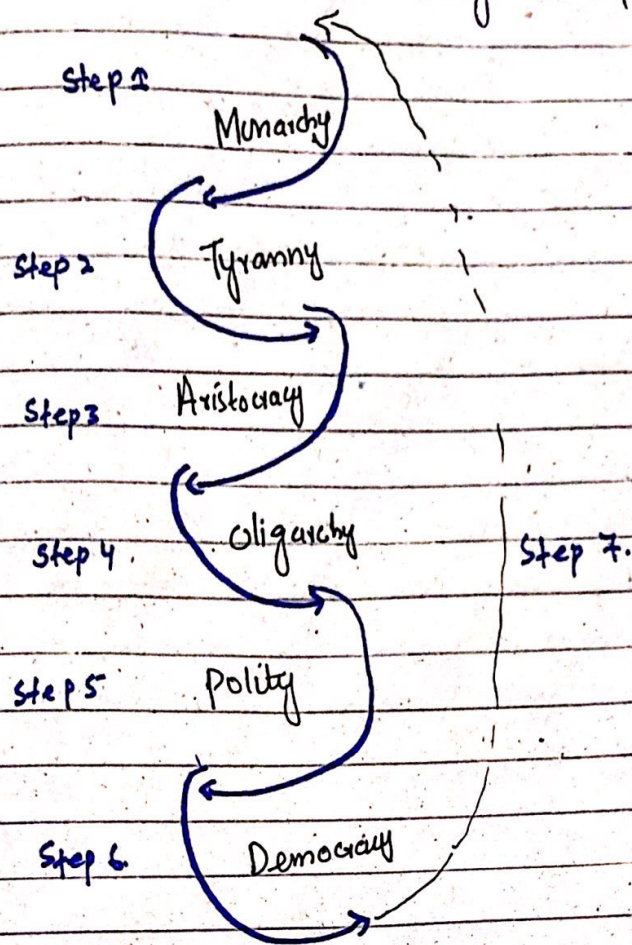 Step 1
Monarchy
Step 2
Tyranny
Step 3
Aristocracy
Step 4.
Oligarchy
Step 7.
Step 5
Polity
Step 6.
Democracy